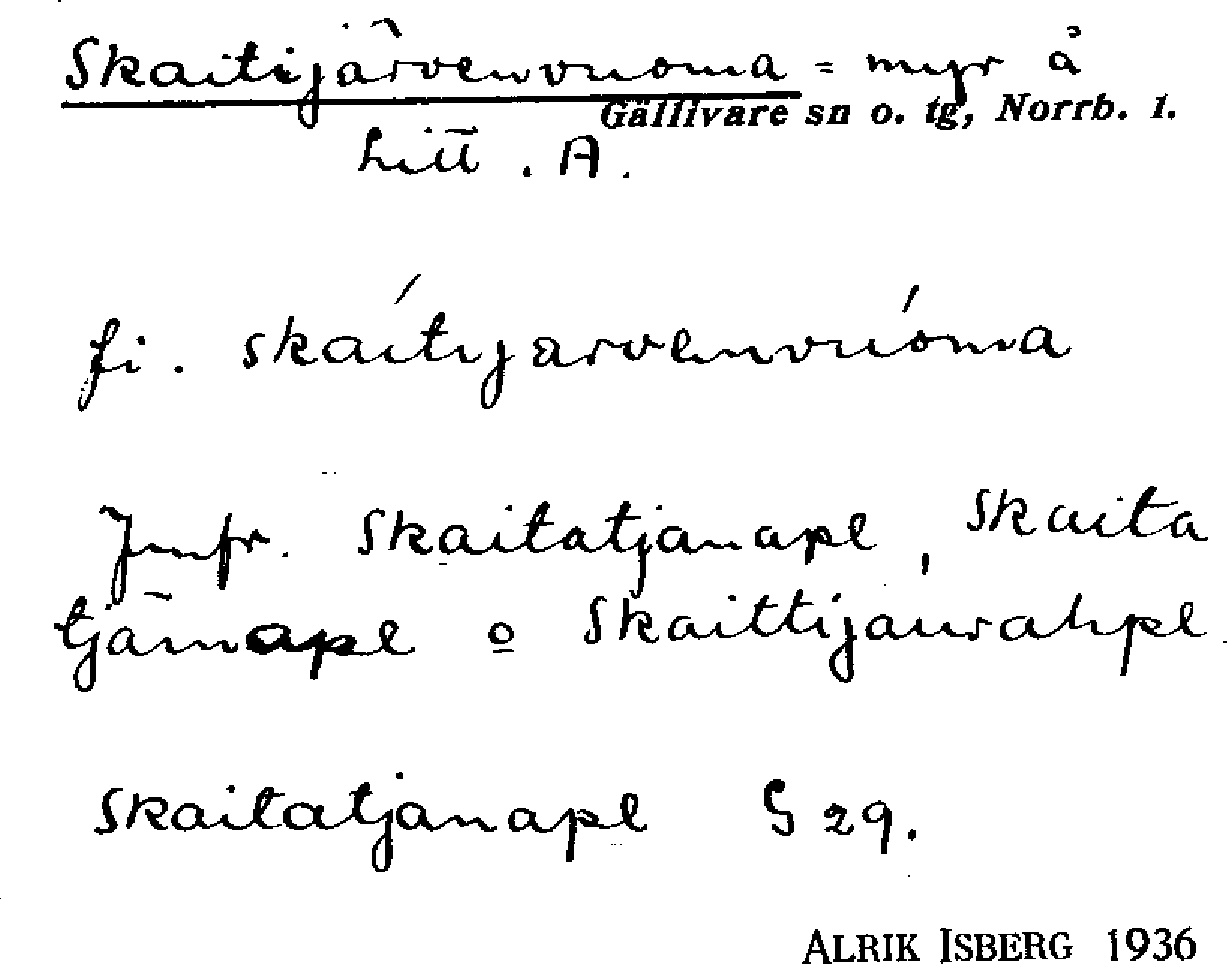 Skaitijärvenvuoma = myr å
Gällivare sn o. tg, Norrb. l.
Litt. A.
fi. skaítijarvenvuóma
Jmfr. Skaitatjanapl, Skaita
tjärnapl o Skaittijáurahpl
Skaitatjanapl G 29.
ALRIK ISBERG 1936